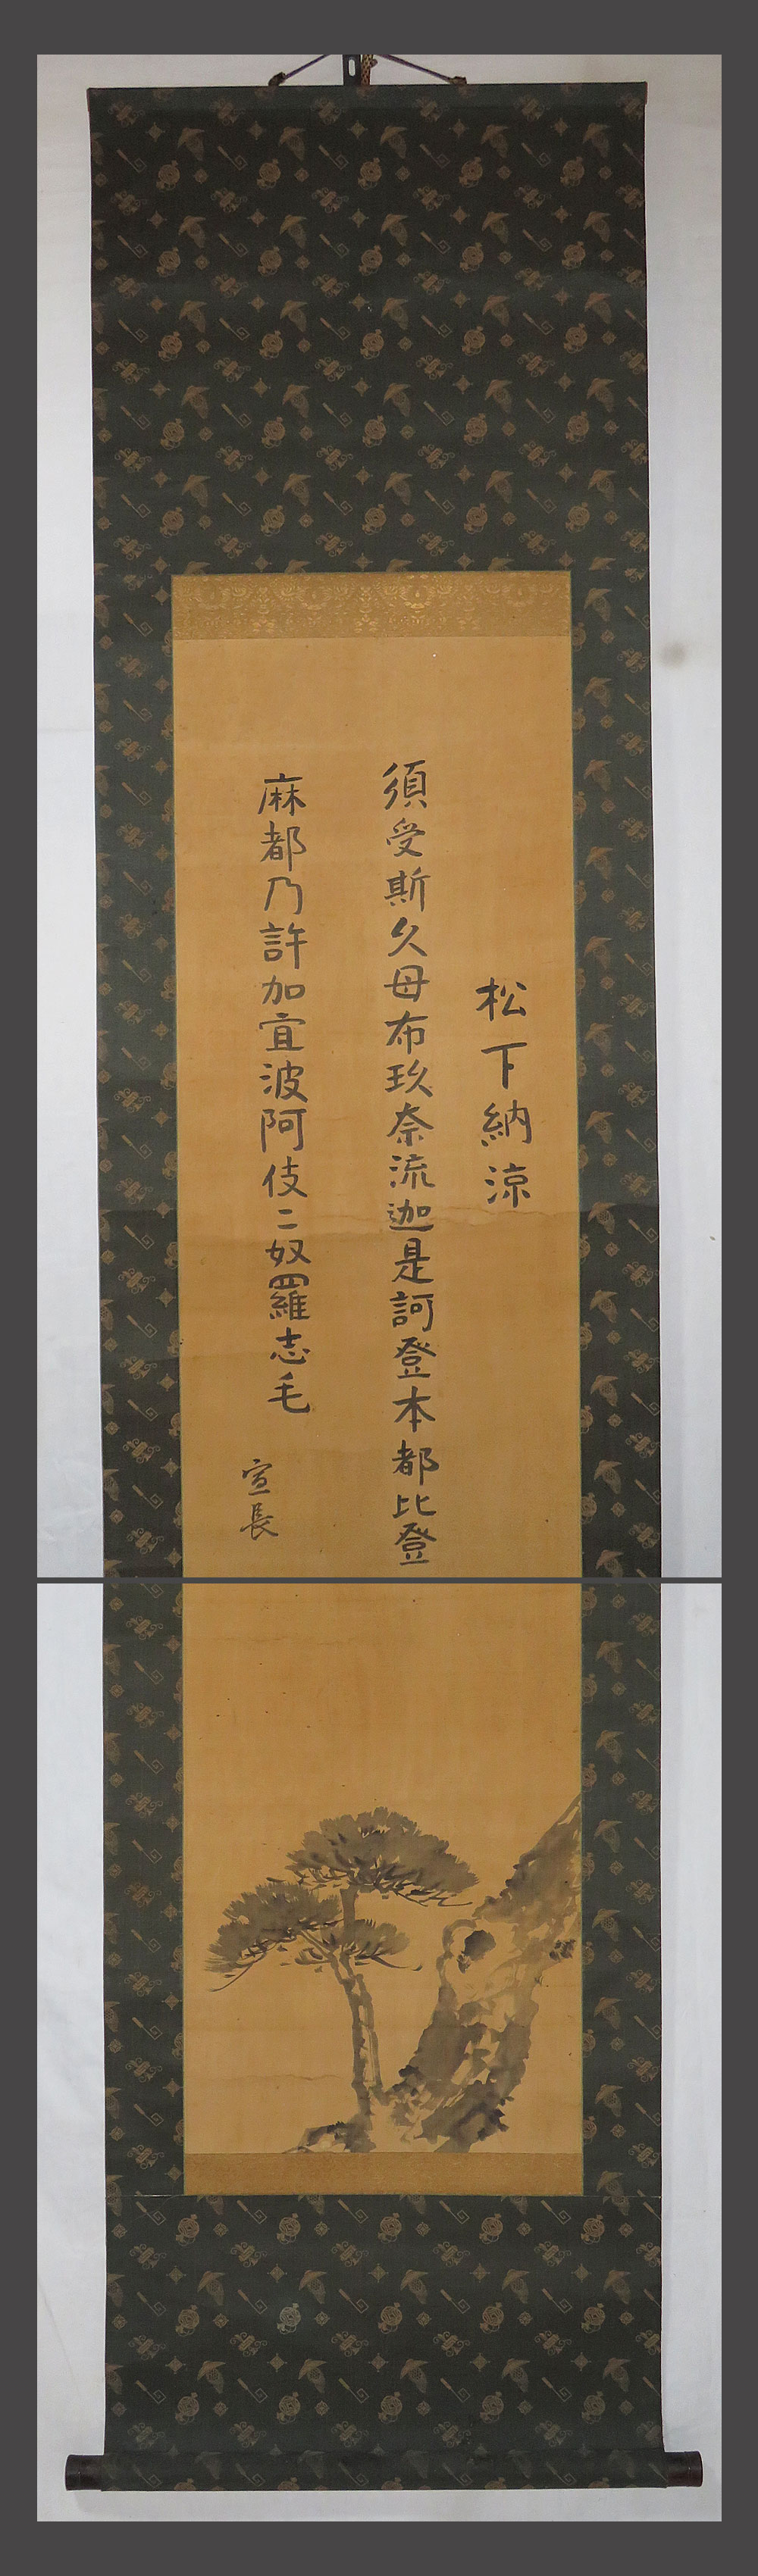 松下納涼
須受斯久母布玖奈流迦是訶登本都比登
麻都乃許加宜波阿伎二奴羅志毛
宣長